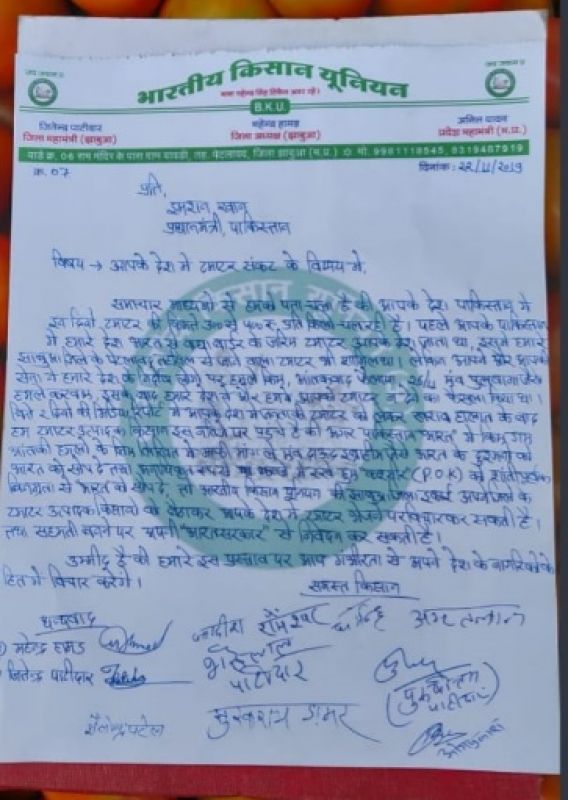 जय जवान
जय किसान
भारतीय किसान यूनियन
B.K.U.
जितेन्द्र पाटीदार
जिला महामंत्री (झाबुआ)
महेन्द्र हामड़
जिला अध्यक्ष (झाबुआ)
अनिल यादव
प्रदेश महामंत्री (म.प्र.)
वार्ड क्र. 06 राम मंदिर के पास ग्राम तह. पेटलावद, जिला झाबुआ (म.प्र.) मो. 9981118545, 8319487919
क्र. 07
दिनांक : 22/11/2019
प्रति,
इमरान खान
प्रधानमंत्री, पाकिस्तान
विषय → आपके देश में टमाटर संकट के विषय में.
समाचार माध्यमो से हमको पता चला है की आपके देश पाकिस्तान में
इन दिनो टमाटर की किमते 300 से 400 रु. प्रति किलो चल रही है। पहले आपके पाकिस्तान
में हमारे देश भारत से वाघा बार्डर के जरिए टमाटर आपके देश जाता था, इसमें हमारे
झाबुआ जिले के पेटलावद तहसील से जाने वाला टमाटर भी शामिल था। लेकिन आपने और आपकी
सेना ने हमारे देश के निर्दोष लोगो पर हमले किए, आतंकवाद फैलाया, 26/11 एवं पुलवामा जैसे
हमले करवाए, इसके बाद हमारे देश ने और हमने आपको टमाटर न देने का फैसला किया था।
बिते 2 दिनो की मिडिया रिपोर्ट में आपके देश में जनता की टमाटर को लेकर खराब हालात के बाद
हम टमाटर उत्पादक किसान इस नतीजे पर पहुचे है की अगर पाकिस्तान "भारत" में किए गए
आतंकी हमलो के लिए में माफी मांग ले एवं दाऊद इब्राहीम जैसे भारत के दुश्मनो को
भारत को सौंप दे तथा कब्जे में रखे हुए कश्मीर (P.O.K) को शांतीपूर्वक
विनम्रता से भारत को सौंप दे, तो भारतीय किसान युनियन की झाबुआ जिला इकाई अपने जिले के
टमाटर उत्पादक किसानो को आपके देश में टमाटर भेजने पर विचार कर सकती है।
तथा सहमती बनने पर अपनी "भारत सरकार" से निवेदन कर सकती है।
उम्मीद है की हमारे इस प्रस्ताव पर आप गंभीरता से अपने देश के नागरिको के
हित में विचार करेंगे।
समस्त किसान
धन्यवाद
महेन्द्र हामड
जितेन्द्र पाटीदार
पाटीदार
पुरुषोत्तम
पाटीदार
शैलेन्द्र पटेल